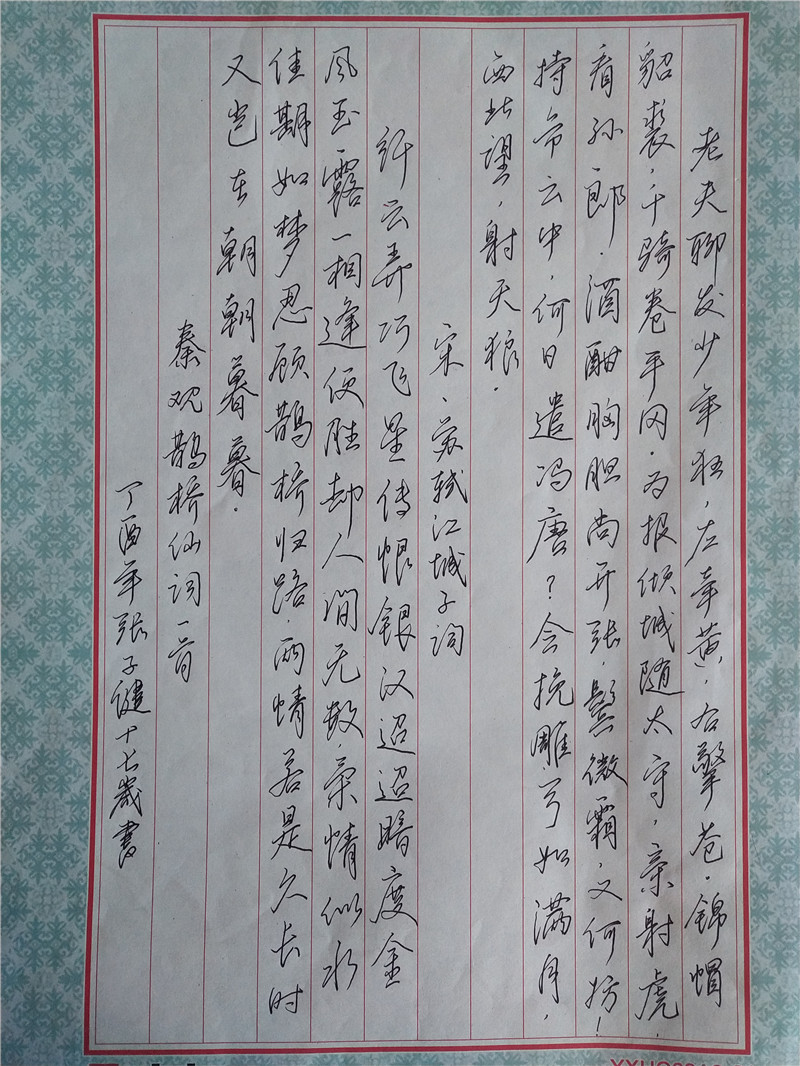 老夫聊发少年狂，左牵黄，右擎苍．锦帽
貂裘，千骑卷平冈．为报倾城随太守，亲射虎．
看孙郎．酒酣胸胆尚开张．鬓微霜，又何妨！
持节云中，何日遣冯唐？会挽雕弓如满月，
西北望，射天狼．
宋、苏轼江城子词
纤云弄巧飞星传恨银汉迢迢暗度金
风玉露一相逢便胜却人间无数．柔情似水
佳期如梦忍顾鹊桥归路．两情若是久长时
又岂在朝朝暮暮．
秦观鹊桥仙词一首
丁酉年张子健十七岁书